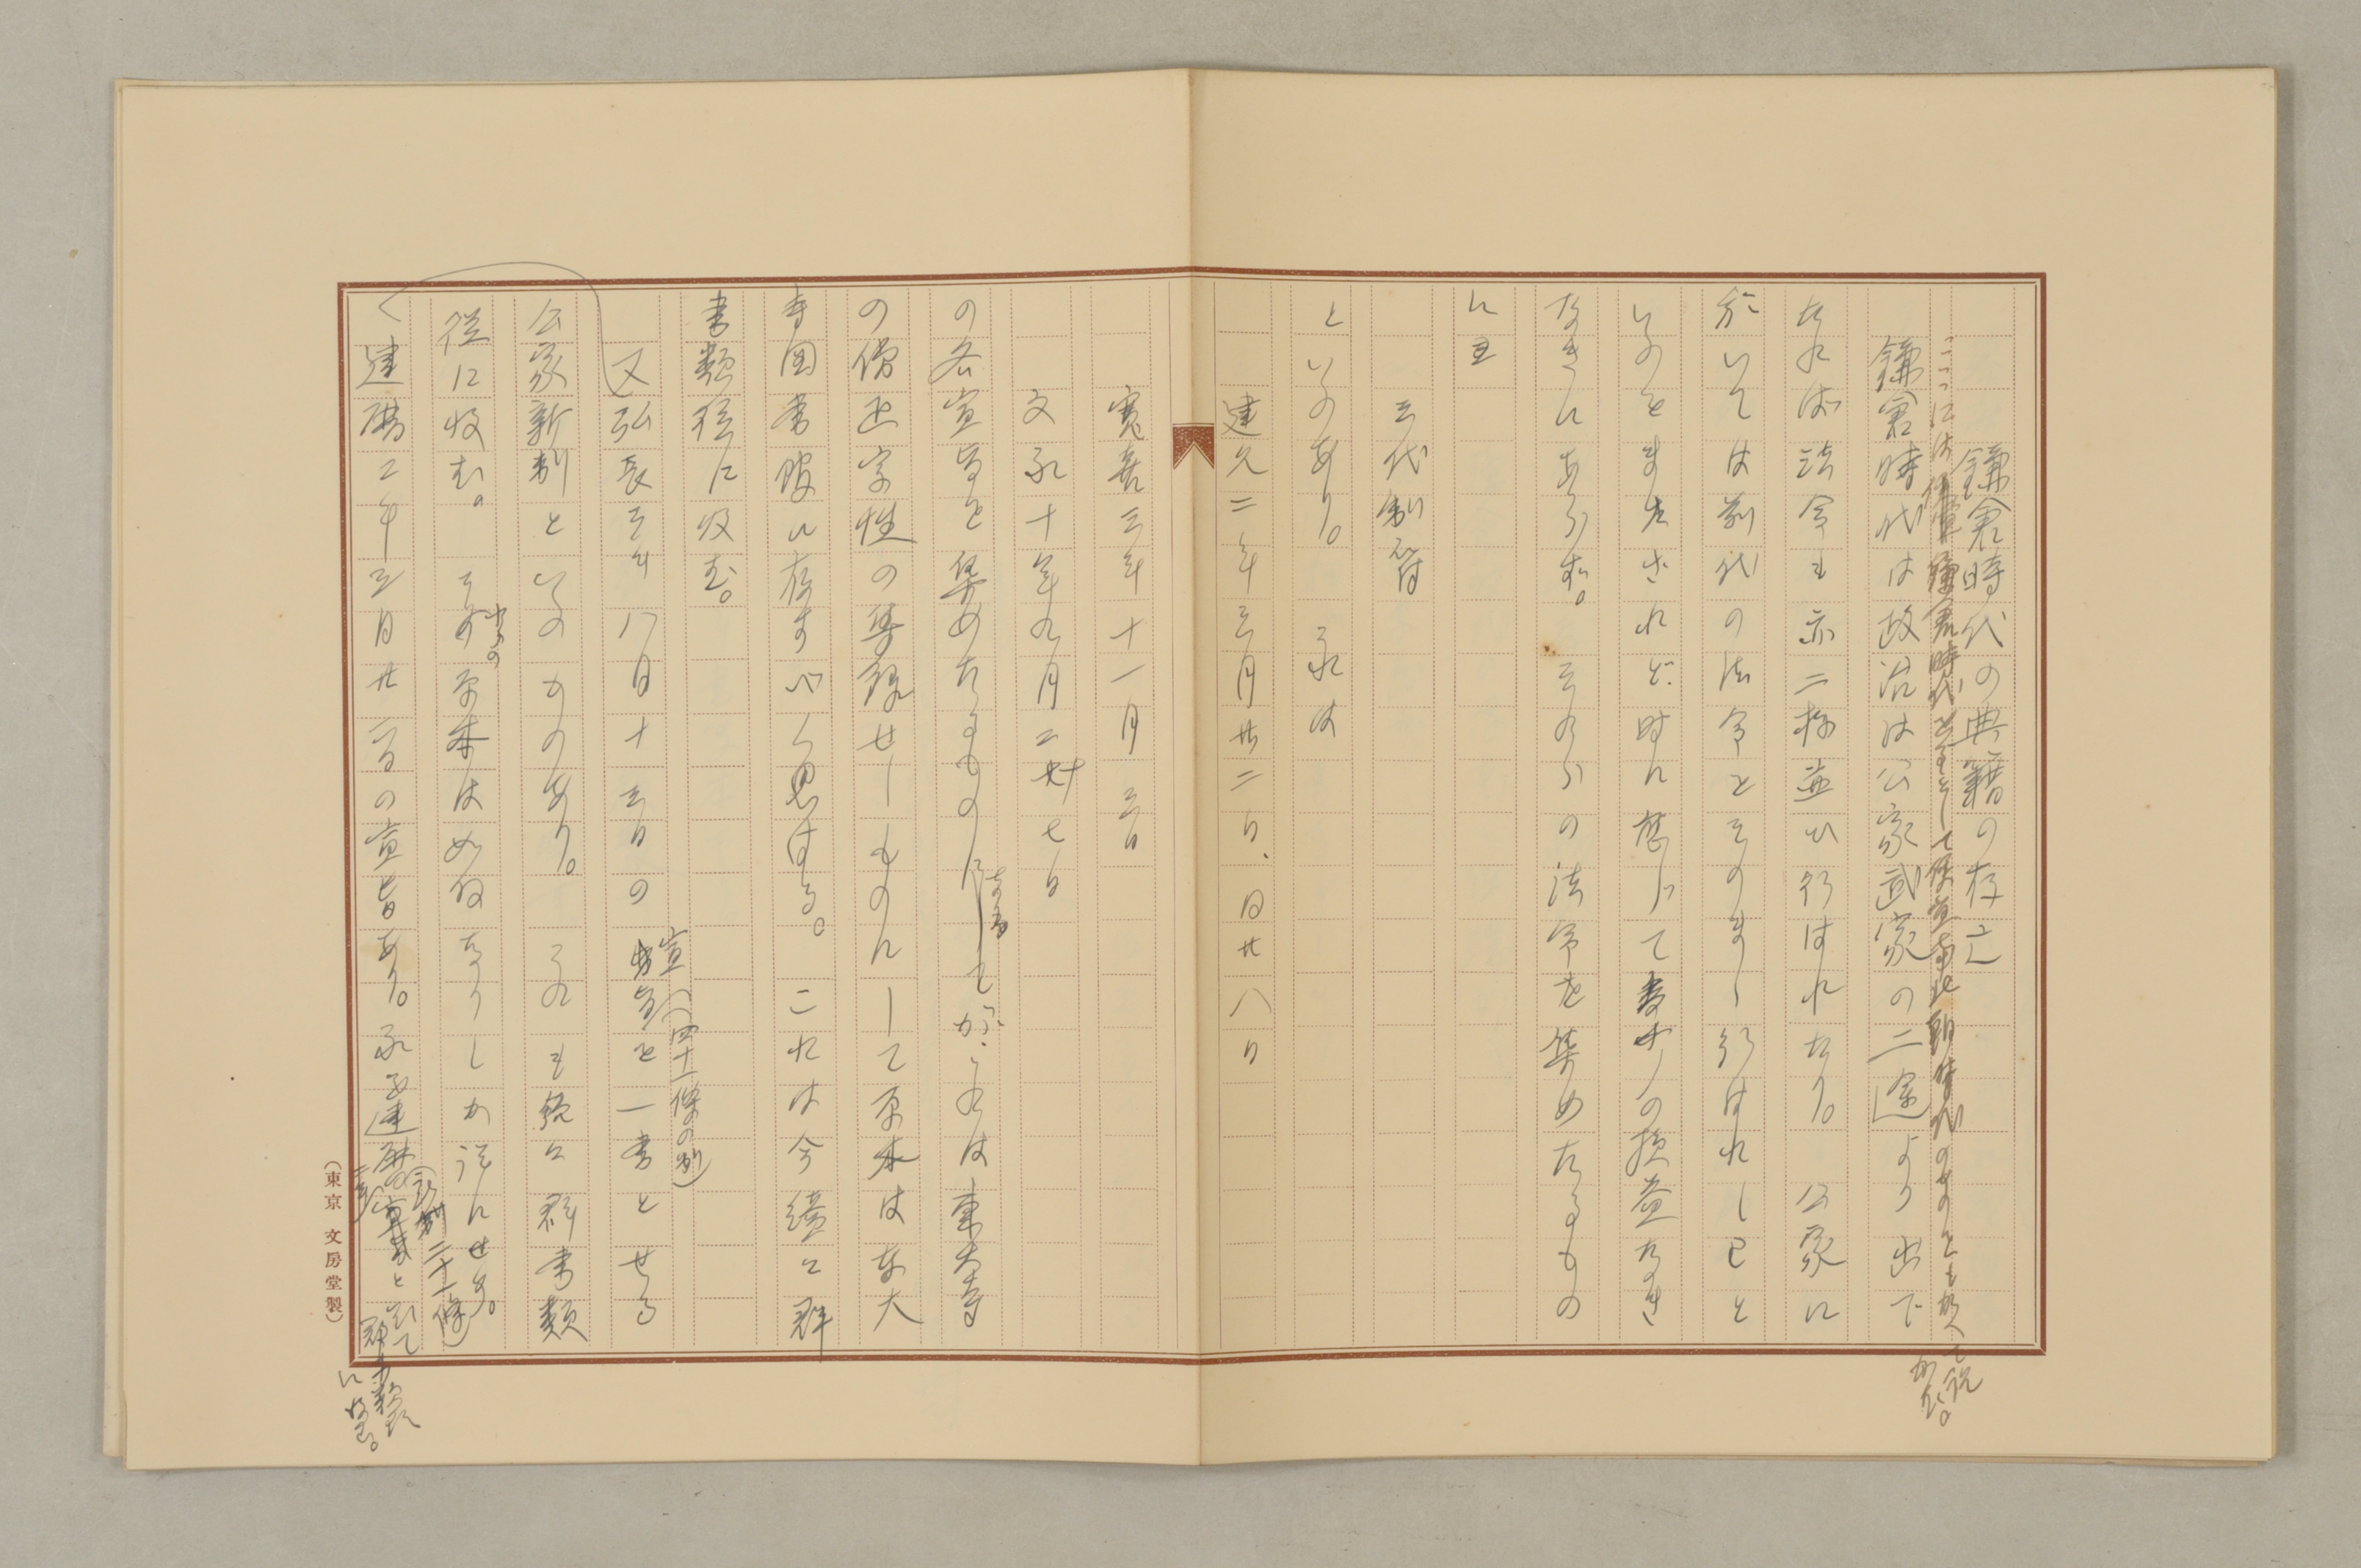 鎌倉時代の典籍の存亡
ここには鎌倉時代を主として
のものとも加へて説
かむ。
鎌倉時代は政治は公家武家の二途より出で
たれば法令も亦二様並ひ行はれたり。公家に
於いては前代の法令をそのまゝ行はれしこと
いふをまたざれど時に應じて多少の損益なき
なきにあらず。それらの法令を集めたるもの
に
三代制符
といふあり。それは
建久二年三月廿二日、同廿八日
寛喜三年十一月三日
文永十年九月二十七日
の各宣旨を集めたるものにしてが、これは東大寺
の僧正宗性の集録せしものにして原本は東大
寺図書館に存すべく思はる。これは今續々群
書類従に收む。
又弘長三年八月十三日の宣旨(四十一條の制)を一書とせる
公家新制といふものあり。これも続々群書類
従に收む。その原本は如何なりしか詳にせず。
建暦二年三月廿二日の宣旨あり。(新制二十一條)
と引て
群書類従
に收む。
(東京 文房堂製)